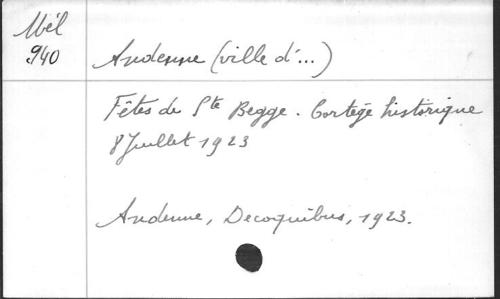 Mél
940
Andenne (ville d'...)
Fêtes de Ste Begge. Cortège historique
8 Juillet 1923
Andenne, Decoquibus, 1923.